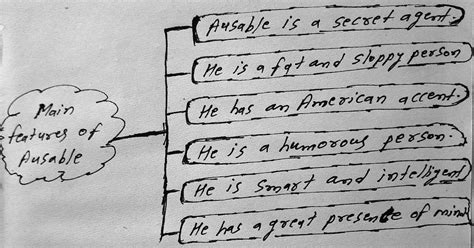 Main
features of
Ausable
Ausable is a secret agent.
He is a fat and sloppy person
He has an American accent.
He is a humorous person.
He is smart and intelligent
He has a great presence of mind